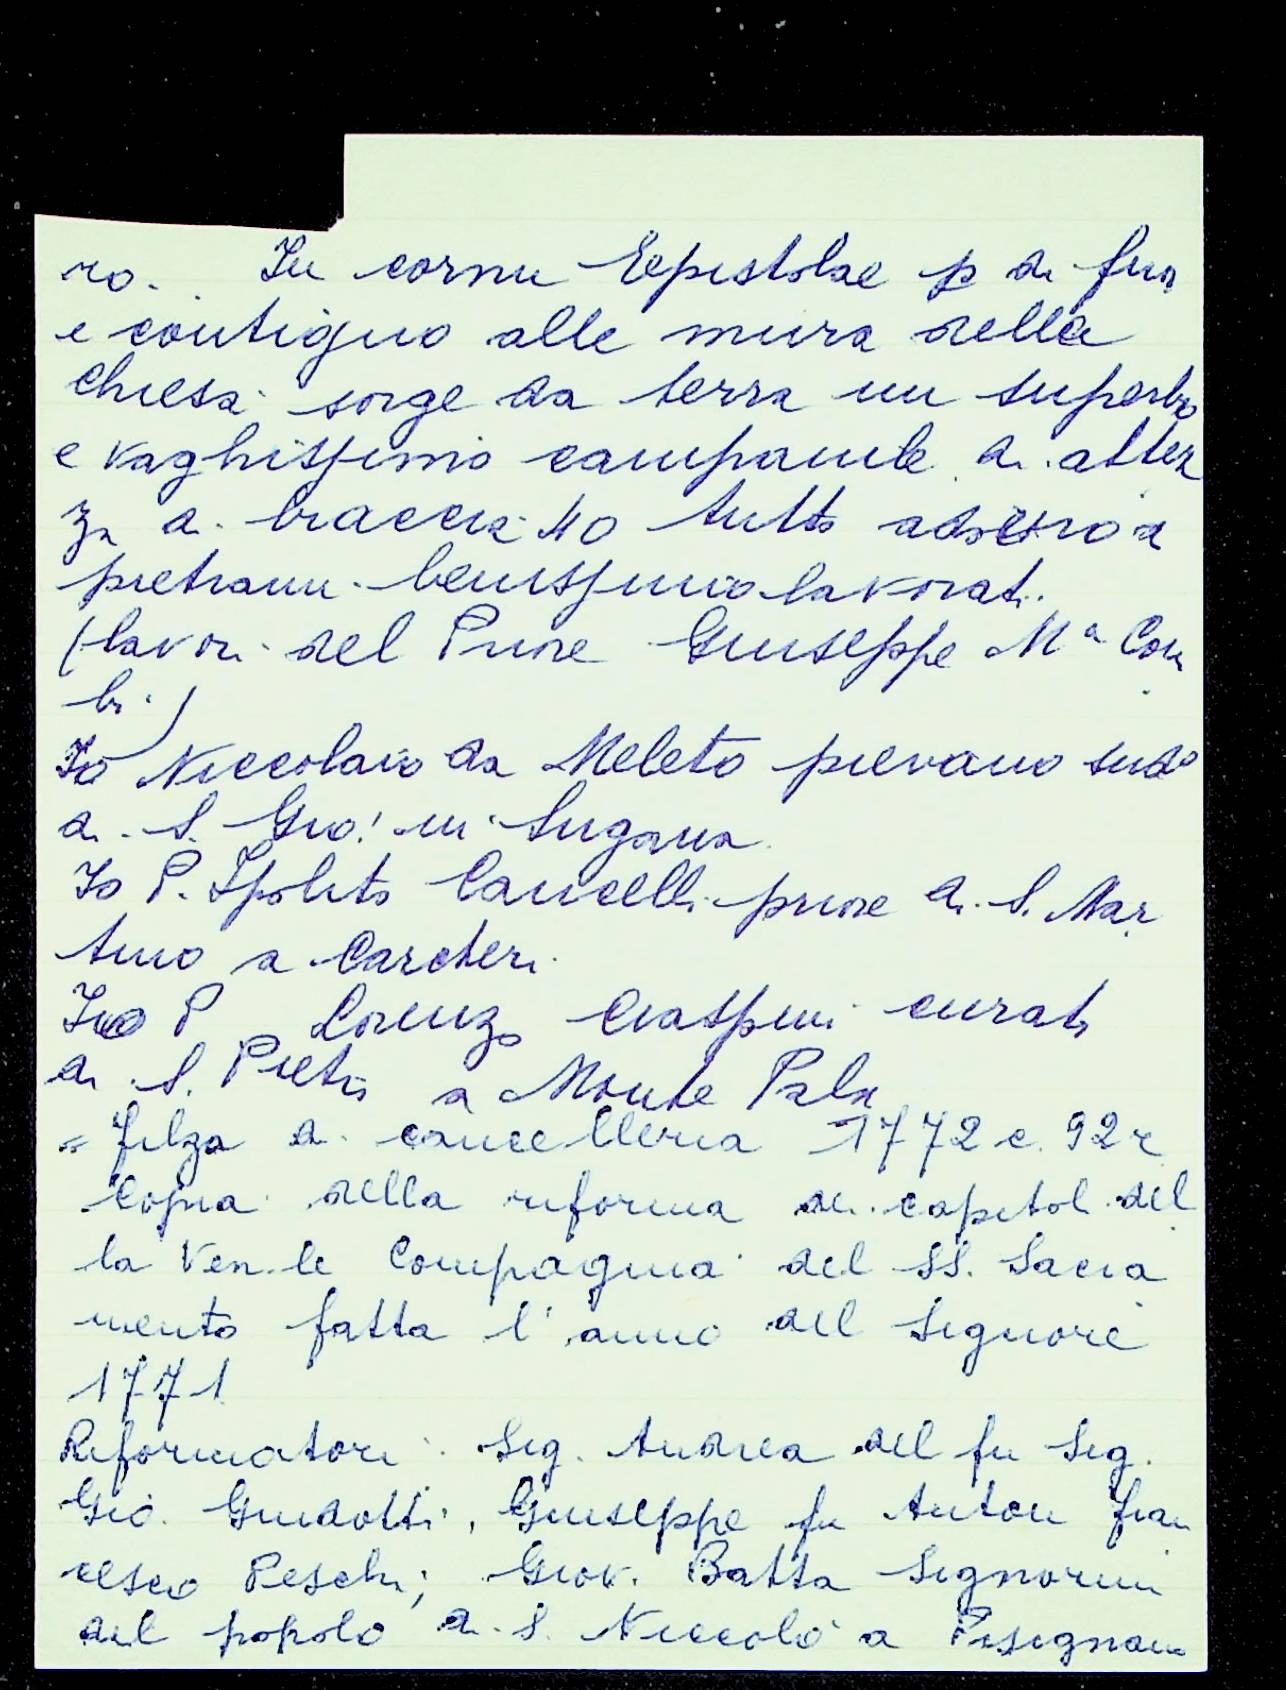 ro. In cornu Epistolae p di fuo
e contiguo alle mura della
Chiesa sorge da terra un superbo
e vaghissimo campanile di altez
za di braccia 40 tutto adorno di
pietrami benissimo lavorati.
(lavori del Priore Giuseppe Mª Com
bi)
Io Niccolaio da Meleto pievano sudº
di S. Gio: in Sugana
Io P. Ipolito Cancelli priore di S. Mar
tino a Carcheri
Io P Lorenzo curato
di S. Pietro a Monte Pald
= filza di cancelleria 1772 c. 92 r
Copia della riforma dei capitoli del
la Ven.le Compagnia del SS. Sacra
mento fatta l'anno del Signore
1771
Riformatori: Sig. Andrea del fu Sig.
Gio. Guidotti, Giuseppe fu Anton Fran
cesco Peschi; Giov. Batta Signorini
del popolo di S. Niccolò a Pisignano